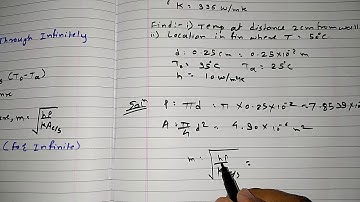 Through Infinitely
(To-Ta)
m = √hP/KAc/s
(for Infinite)
K = 335 W/mk
Find:- i) Temp at distance 2cm from wall
ii) Location in fin where T = 50°C
d = 0.25 cm = 0.25×10⁻² m
To = 95°C Ta = 25°C
h = 10 w/m²k
Solⁿ P = πd = π × 0.25×10⁻² = 7.8539×10
A = π/4 d² = 4.90×10⁻⁶ m²
m = √hP/KAc/s =